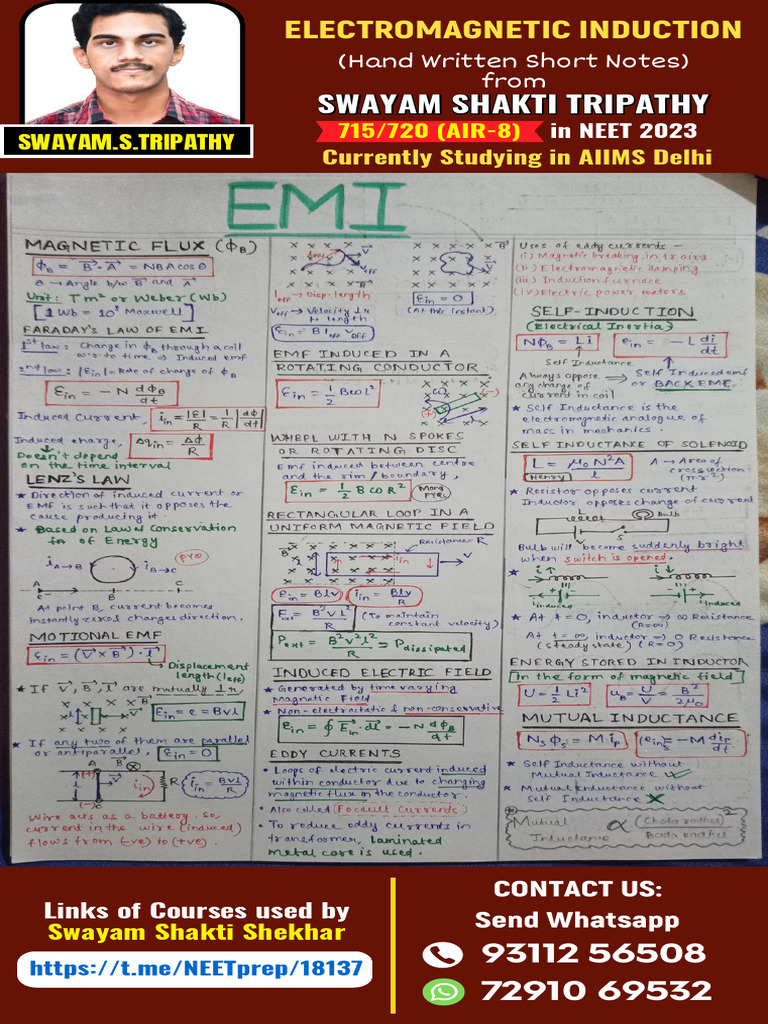 ELECTROMAGNETIC INDUCTION
(Hand Written Short Notes)
from
SWAYAM SHAKTI TRIPATHY
715/720 (AIR-8) in NEET 2023
Currently Studying in AIIMS Delhi
SWAYAM.S.TRIPATHY
EMI
MAGNETIC FLUX (ΦB)
ΦB = B⃗·A⃗ = NBA cos θ
θ → Angle b/w B⃗ and A⃗
Unit: Tm² or Weber (Wb)
[1 Wb = 10⁸ Maxwell]
FARADAY'S LAW OF EMI
1st law: Change in ΦB through a coil
w.r.to time ⇒ Induced emf
2nd law: |Ein| = Rate of change of ΦB
Ein = -N dΦB/dt
Induced Current, iin = |E|/R = 1/R |dΦ/dt|
Induced charge, Δqin = ΔΦ/R
Doesn't depend
on the time interval
LENZ'S LAW
★ Direction of induced current or
EMF is such that it opposes the
cause producing it.
★ Based on Law of Conservation
of Energy
iA→B iB→C PYQ
A B C
At point B, current becomes
instantly zero & changes direction.
MOTIONAL EMF
Ein = (V⃗×B⃗)·l⃗
Displacement
length (leff)
★ If V⃗, B⃗, l⃗ are mutually ⊥r
Ein = e = Bvl
★ If any two of them are parallel
or antiparallel, Ein = 0
(+) B⃗ V⃗ l iin R iin = Bvl/R
(-)
Wire acts as a battery. So,
current in the wire (induced)
flows from (-ve) to (+ve).
leff → Disp. length
Veff → Velocity ⊥r
to length
Ein = B leff Veff
Ein = 0
(At this instant)
EMF INDUCED IN A
ROTATING CONDUCTOR
Ein = 1/2 Bωl²
(+) (-)
WHEEL WITH N SPOKES
OR ROTATING DISC
Emf induced between centre
and the rim/boundary,
Ein = 1/2 BωR² (Many PYQs)
RECTANGULAR LOOP IN A
UNIFORM MAGNETIC FIELD
Resistance = R
Ein = Blv iin = Blv/R
Fext = B²vl²/R (To maintain
constant velocity)
Pext = B²v²l²/R = Pdissipated
INDUCED ELECTRIC FIELD
★ Generated by time varying
Magnetic Field
★ Non-electrostatic & non-conservative
ein = ∮ E⃗in·dl⃗ = -N dΦB/dt
EDDY CURRENTS
• Loops of electric current induced
within conductor due to changing
magnetic flux on the conductor.
• Also called Focault Currents
• To reduce eddy currents in
transformer, laminated
metal core is used.
Uses of eddy currents -
(i) Magnetic breaking in trains
(ii) Electromagnetic damping
(iii) Induction furnace
(iv) Electric power meters
SELF-INDUCTION
(Electrical Inertia)
NΦB = Li ein = -L di/dt
Self Inductance
Always oppose
any change of
current in coil
⇒ Self Induced emf
or BACK EMF
★ Self Inductance is the
electromagnetic analogue of
mass in mechanics.
SELF INDUCTANCE OF SOLENOID
L = μ₀N²A/l A → Area of
cross section
(πr²)
Henry
★ Resistor opposes current
Inductor opposes change of current
L Bulb
S
Bulb will become suddenly bright
when switch is opened.
★ i↑ i↓
iinduced iinduced
★ At t = 0, inductor → ∞ Resistance
(R=∞)
At t = ∞, inductor → 0 Resistance
(steady state) (R=0)
ENERGY STORED IN INDUCTOR
In the form of magnetic field
U = 1/2 Li² uB = U/V = B²/2μ₀
MUTUAL INDUCTANCE
NsΦs = Mip (ein)s = -M dip/dt
★ Self Inductance without
Mutual Inductance ✓
★ Mutual Inductance without
Self Inductance ✗
Mutual
Inductance α (Chota radius)²
Bada radius
Links of Courses used by
Swayam Shakti Shekhar
https://t.me/NEETprep/18137
CONTACT US:
Send Whatsapp
93112 56508
72910 69532